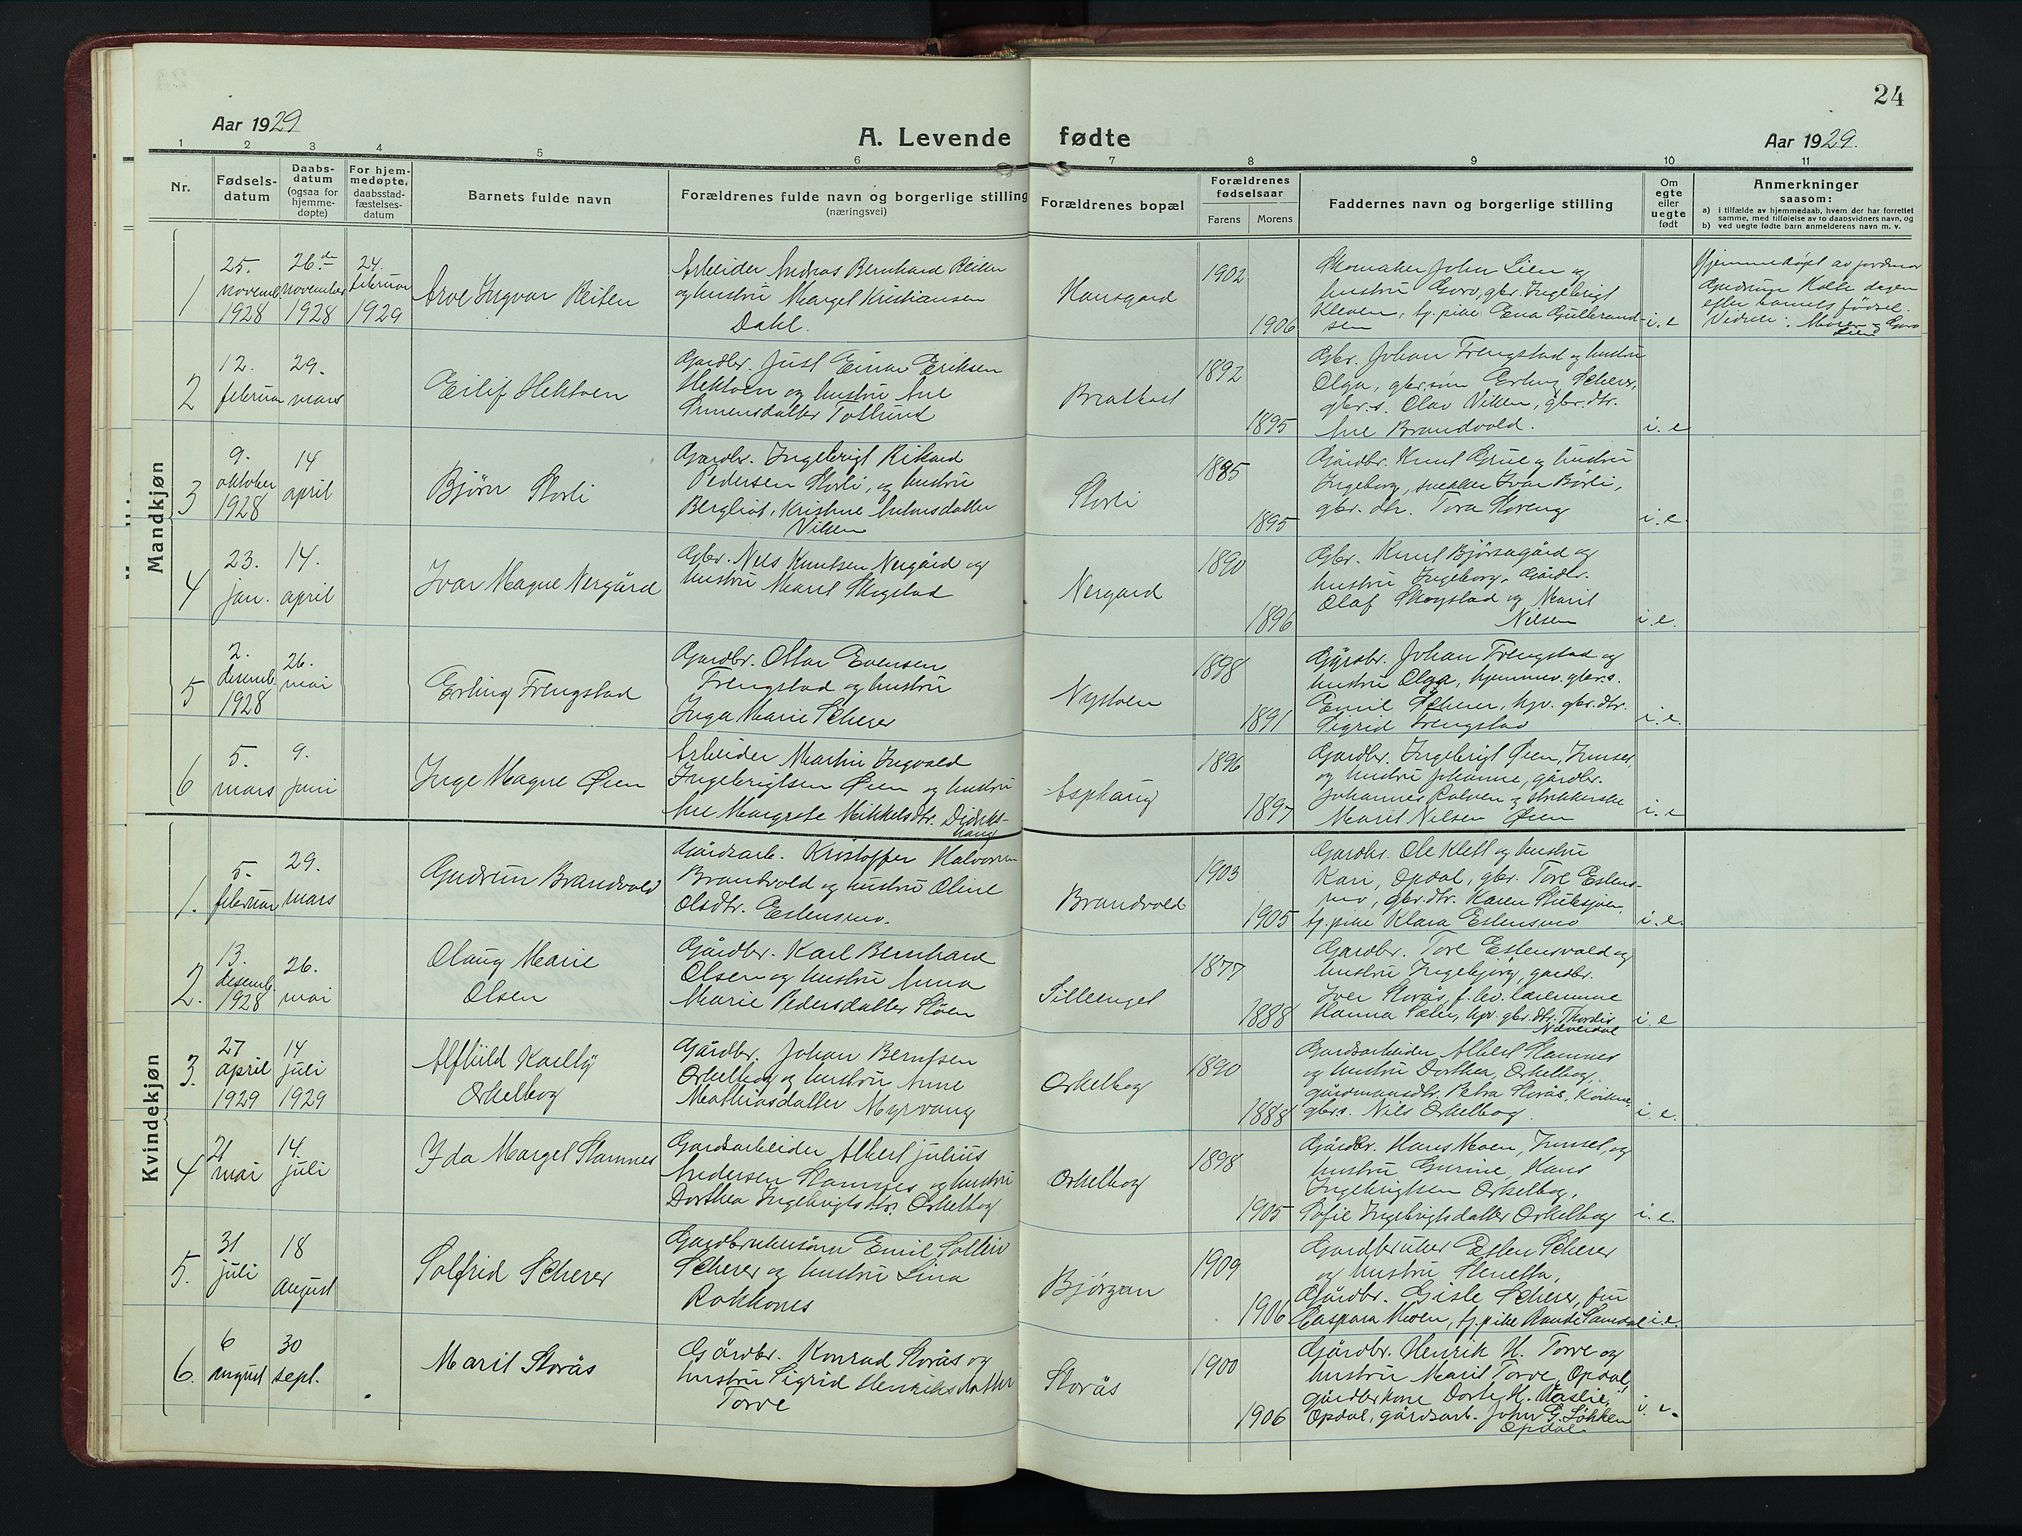 24
Aar 1929
A. Levende fødte
Aar 1929.
1 2 3 4 5 6 7 8 9 10 11
Nr.
Fødsels-
datum
Daabs-
datum
(ogsaa for
hjemme-
døpte)
For hjem-
medøpte,
daabsstad-
fæstelses-
datum
Barnets fulde navn
Forældrenes fulde navn og borgerlige stilling
(næringsvei)
Forældrenes bopæl
Forældrenes
fødselsaar
Farens
Morens
Faddernes navn og borgerlige stilling
Om
egte
eller
uegte
født
Anmerkninger
saasom:
a) i tilfælde av hjemmedaab, hvem der har forrettet
samme, med tilføielse av to daabsvidners navn, og
b) ved uegte fødte barn anmelderens navn m. v.
Mandkjøn
1
25.
novemb.
1928
26de
november
1928
24.
februar
1929
Arve Ingvar Reiten
Arbeider Andreas Bernhard Reiten
og hustru Marget Kristiansen
Dahl.
Hansgard
1902
1906
Skomaker John Lien og
hustru Goro, gbr. Ingebrigt
Kleven, tj. pike Eva Gulbrand-
sen
i. e
Hjemmedøpt av jordmor
Gudrun Kolte dagen
efter barnets fødsel.
Vidner: Moren og Goro
Lien
2
12.
februar
29.
mars
Eilif Hektoen
Gardbr. Just Einar Eriksen
Hektoen og hustru Ane
Simensdatter Tollund
Bratkat
1892
1895
Gbr. Johan Trengstad og hustru
Olga, gbr.søn Erling Scherer,
gbr.s. Olav Vikan, gbr. dtr.
Ane Brandvold.
i. e
3
9.
oktober
1928
14
april
Bjørn Storli
Gardbr. Ingebrigt Rikard
Pedersen Storli, og hustru
Bergliot Kristine Antonsdatter
Storli
1885
1895
Gårdbr. Knut Grue og hustru
Ingeborg, snekker Ivar Børli,
gbr. dtr. Tora Storeng
i. e.
4
23.
jan.
14.
april
Ivar Magne Nergård
Gbr. Nils Knutsen Nergård og
hustru Marit Skogstad
Nergard
1890
1896
Gbr. Knut Bjørsagård og
hustru Ingeborg, Gårdbr.
Olaf Skogstad og Marit
Nilsen
i. e.
5
2.
desemb.
1928
26.
mai
Erling Trengstad
Gardbr. Ottar Evensen
Trengstad og hustru
Inga Marie Scherer
Nystuen
1898
1891
Gårdbr. Johan Trengstad og
hustru Olga, hjemmev. gbr.s.
Emil Scherer, hjv. gbr. dtr.
Sigrid Trengstad
i. e.
6
5.
mars
9.
juni
Inge Magne Øien
Arbeider Martin Ingvald
Ingebrigtsen Øien og hustru
Ane Margrete Mikkelsdtr. Didriks-
haug
Asphaug
1896
1897
Gardbr. Ingebrigt Øien, Innset,
og hustru Johanne, gårdbr.
Johannes Ratven og strikkerske
Marit Nilsen Øien
i. e
Kvindekjøn
1.
5.
februar
29.
mars
Gudrun Brandvold
Gårdsarb. Kristoffer Halvorsen
Brandvold og hustru Oline
Olsdtr. Estensmo.
Brandvold
1903
1905
Gardbr. Ole Klett og hustru
Kari, Opdal, gbr. Tore Estens-
mo, gbr. dtr. Karen Stubsjøen,
tj. pike Klara Estensmo
i. e.
2.
13.
desemb.
1928
26.
mai
Olaug Marie
Olsen
Gårdbr. Karl Bernhard
Olsen og hustru Anna
Marie Pedersdatter Støen
Silleenget
1877
1888
Gardbr. Tore Estensvold og
hustru Ingebjørg, gardbr.
Iver Storås, f. hv. lærerinne
Hanna Sæter, hjv. gbr. dtr. Thordis
Næverdal
i. e
3.
27
april
1929
14
juli
1929
Alfhild Karlby
Orkelbog
Gårdbr. Johan Berntsen
Orkelbog og hustru Anne
Mathiasdatter Myrvang
Orkelbog
1890
1888
Gardsarbeider Albert Stamnes
og hustru Dorthea, Orkelbog,
gårdmansdtr. Petra Storås, Kvikne,
gbrs. Nils Orkelbog.
i. e.
4
21
mai
14.
juli
Ida Marget Stamnes
Gardsarbeider Albert Julius
Andersen Stamnes og hustru
Dorthea Ingebrigtsdtr. Orkelbog
Orkelbog
1898
1905
Gårdbr. Hans Moen, Innset, og
hustru Gurine, Hans
Ingebrigtsen Orkelbog,
Sofie Ingebrigtsdatter Orkelbog
i. e.
5.
31
juli
18
august
Solfrid Scherer
Gardbrukersønn Emil
Scherer og hustru Lina
Rokkones
Bjørgan
1909
1906
Gardbruker Esten Scherer
og hustru Stenetta,
Gårdbr. Gisle Scherer, fru
Caspara Moen, tj. pike Randi Samdal
i. e.
6.
6
august
30
sept.
Marit Storås
Gårdbr. Konrad Storås og
hustru Sigrid Henriksdatter
Torve
Storås
1900
1906
Gårdbr. Henrik H. Torve og
hustru Marit Torve, Opdal,
gårdbr.kone Dorte H. Vaslie,
Opdal, gårdsarb. John G. Løkken
Opdal
i. e.